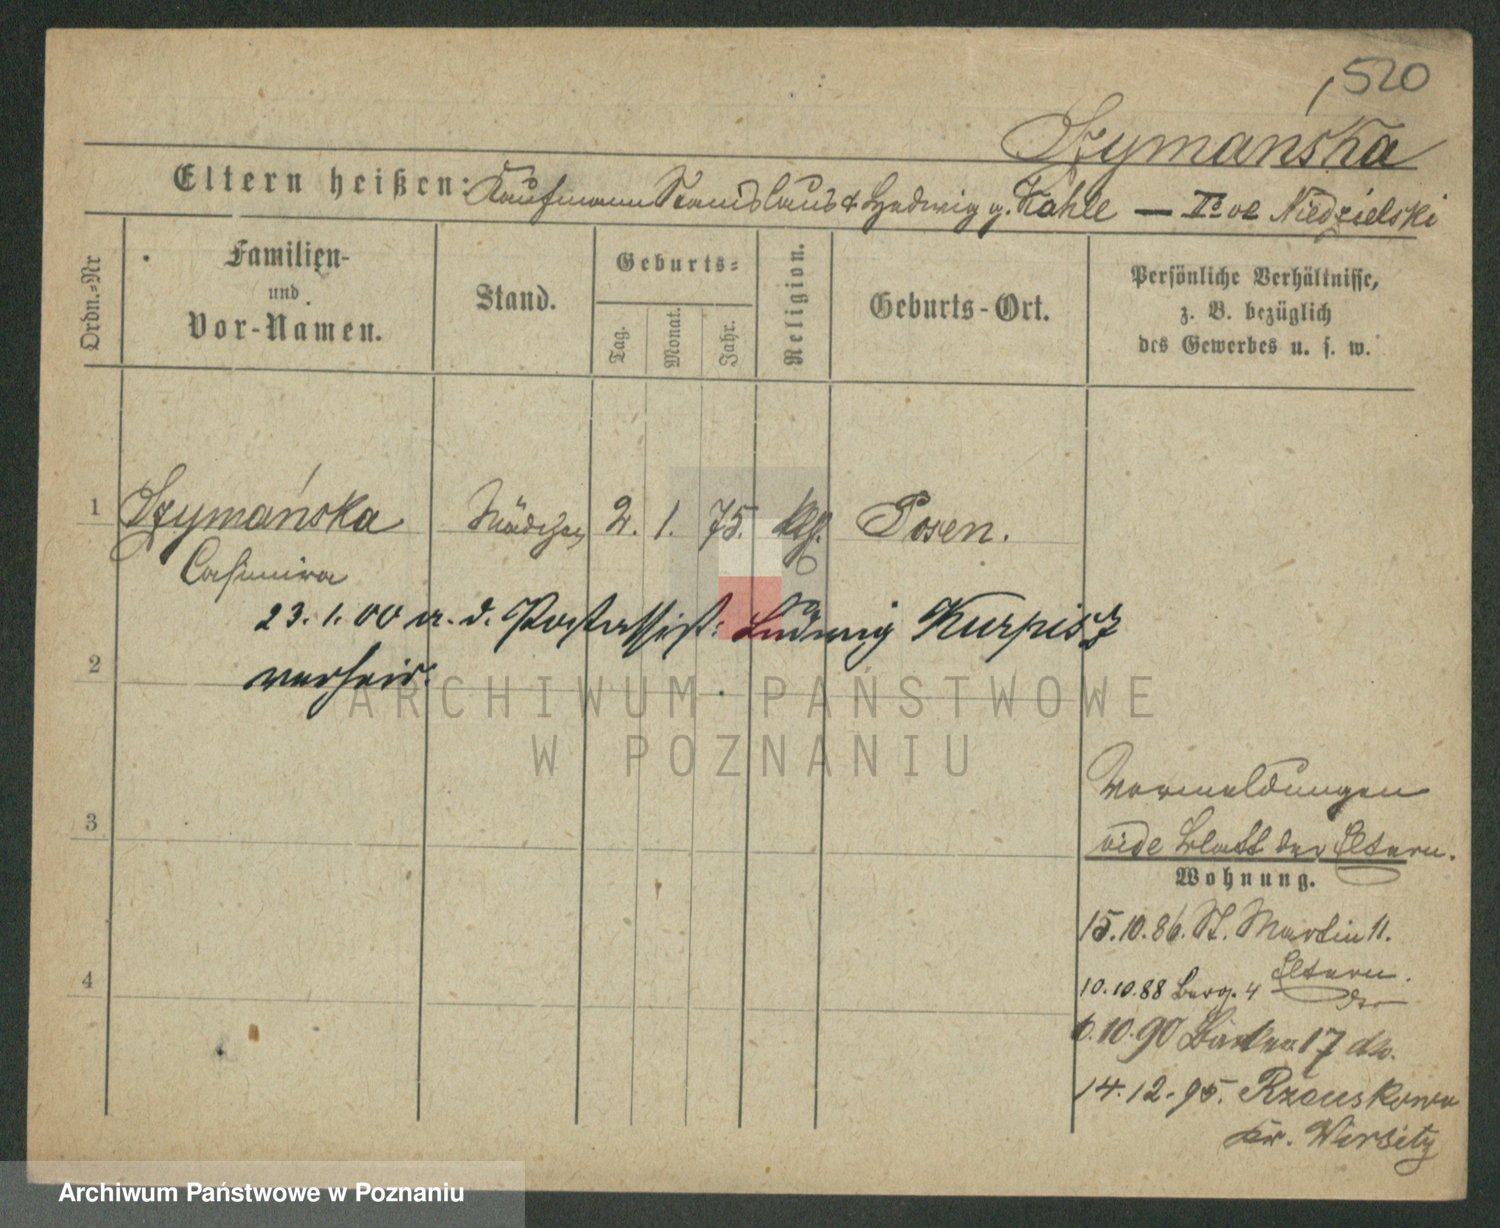 520
Szymańska
Eltern heißen: Kaufmann Stanislaus & Hedwig g. Kahle — II° vo Niedzielski
Ordn.=Nr
Familien-
und
Vor-Namen.
Stand.
Geburts=
Tag.
Monat.
Jahr.
Religion.
Geburts-Ort.
Persönliche Verhältnisse,
z. B. bezüglich
des Gewerbes u. s. w.
1 Szymańska Mädchen 2. 1. 75. kth. Posen.
Casimira
23.1.00 a. d. Postassist: Ludwig Kurpisz
2
verheir.
ARCHIWUM PAŃSTWOWE
W POZNANIU
3
Vormeldungen
vide Blatt der Eltern.
Wohnung.
15.10.86. St. Martin 11.
Eltern.
4
10.10.88 Berg. 4 dto
6.10.90 Bäcker 17 do.
14.12.95. 
Kr.
Archiwum Państwowe w Poznaniu